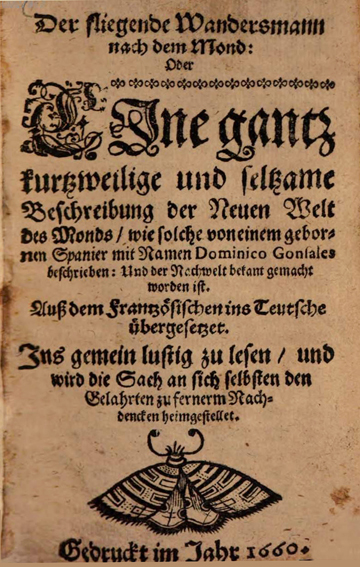 Der fliegende Wandersmann
nach dem Mond:
Oder
EIne gantz
kurtzweilige und seltzame
Beschreibung der Neuen Welt
des Monds / wie solche von einem gebor-
nen Spanier mit Namen Dominico Gonsales
beschrieben: Und der Nachwelt bekant gemacht
worden ist.
Auß dem Frantzösischen ins Teutsche
übergesetzet.
Ins gemein lustig zu lesen / und
wird die Sach an sich selbsten den
Gelahrten zu fernerm Nach-
dencken heimgestellet.
Gedruckt im Jahr 1660.